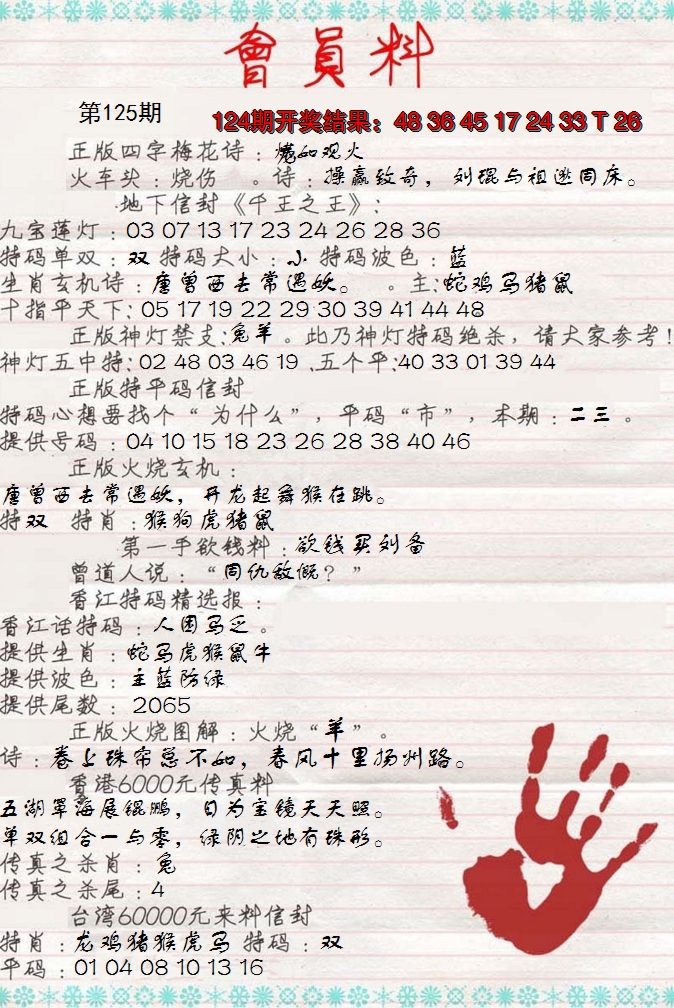 會員料
第125期
124期开奖结果：48 36 45 17 24 33 T 26
正版四字梅花诗：燎如观火
火车头：烧伤 。诗：操赢致奇，刘琨与祖逖同床。
地下信封《千王之王》：
九宝莲灯：03 07 13 17 23 24 26 28 36
特码单双：双 特码大小：小 特码波色：蓝
生肖玄机诗：唐曾西去常遇妖。 。主：蛇鸡马猪鼠
十指平天下：05 17 19 22 29 30 39 41 44 48
正版神灯禁支：兔羊。此乃神灯特码绝杀，请大家参考！
神灯五中特：02 48 03 46 19 .五个平：40 33 01 39 44
正版特平码信封
特码心想要找个“为什么”，平码“市”，本期：二三。
提供号码：04 10 15 18 23 26 28 38 40 46
正版火烧玄机：
唐曾西去常遇妖，开龙起舞猴在跳。
特双 特肖：猴狗虎猪鼠
第一手欲钱料：欲钱买刘备
曾道人说：“同仇敌慨？”
香江特码精选报：
香江话特码：人困马乏。
提供生肖：蛇马虎猴鼠牛
提供波色：主蓝防绿
提供尾数：2065
正版火烧图解：火烧“羊”。
诗：卷上珠帘总不如，春风十里扬州路。
香港6000元传真料
五湖罩海展锟鹏，日为宝镜天天照。
单双组合一与零，绿阴之地有珠形。
传真之杀肖：兔
传真之杀尾：4
台湾60000元来料信封
特肖：龙鸡猪猴虎马 特码：双
平码：01 04 08 10 13 16